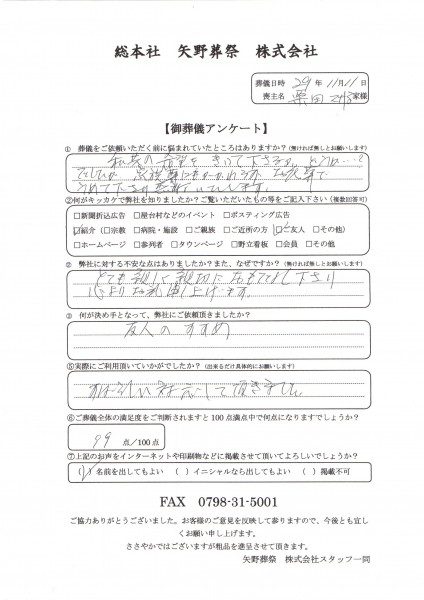 総本社 矢野葬祭 株式会社
葬儀日時 29年 11月11日
喪主名 栗田 家様
【御葬儀アンケート】
① 葬儀をご依頼いただく前に悩まれていたところはありますか?(無ければ無しとお願いします)
②何がキッカケで弊社を知りましたか?ご覧いただいたもの等をご記入下さい(複数回答可)
□新聞折込広告 □屋台村などのイベント □ポスティング広告
☑紹介(□宗教 □病院・施設 □ご親族 □ご近所の方 ☑ご友人 □その他)
□ホームページ □参列者 □タウンページ □野立看板 □会員 □その他
② 弊社に対する不安な点はありましたか?また、なぜですか?(無ければ無しとお願いします)
とても親しく親切に
心よりお礼申し上げます。
③ 何が決め手となって、弊社にご依頼頂きましたか?
友人のすすめ
⑤実際にご利用頂いていかがでしたか?(出来るだけ具体的にお願いします)
して頂きました。
⑥ご葬儀全体の満足度をご判断されますと100点満点中で何点になりますでしょうか?
99 点/100点
⑦上記のお声をインターネットや印刷物などに掲載させて頂いてよろしいでしょうか?
(✓)名前を出してもよい ( )イニシャルなら出してもよい ( )掲載不可
FAX 0798-31-5001
ご協力ありがとうございました。お客様のご意見を反映して参りますので、今後とも宜し
くお願い申し上げます。
ささやかではございますが粗品を進呈させて頂きます。
矢野葬祭 株式会社スタッフ一同